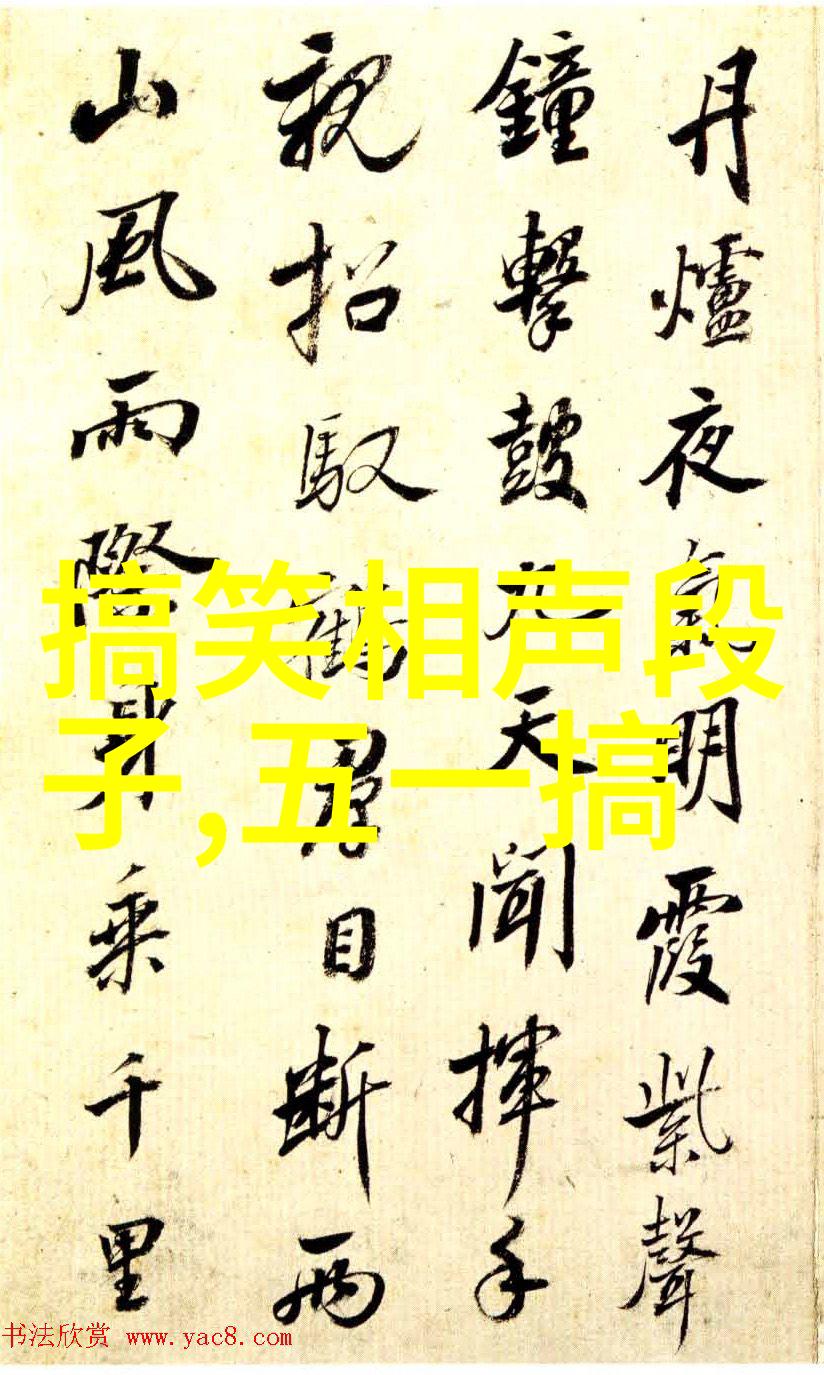 丹爐夜氣明霞紫聲
鐘擊鼓九天聞揮手
親招馭鶴羣目斷兩
山風雨際身乘千里
搞笑相声段
子,五一搞
书法欣赏 www.yac8.com